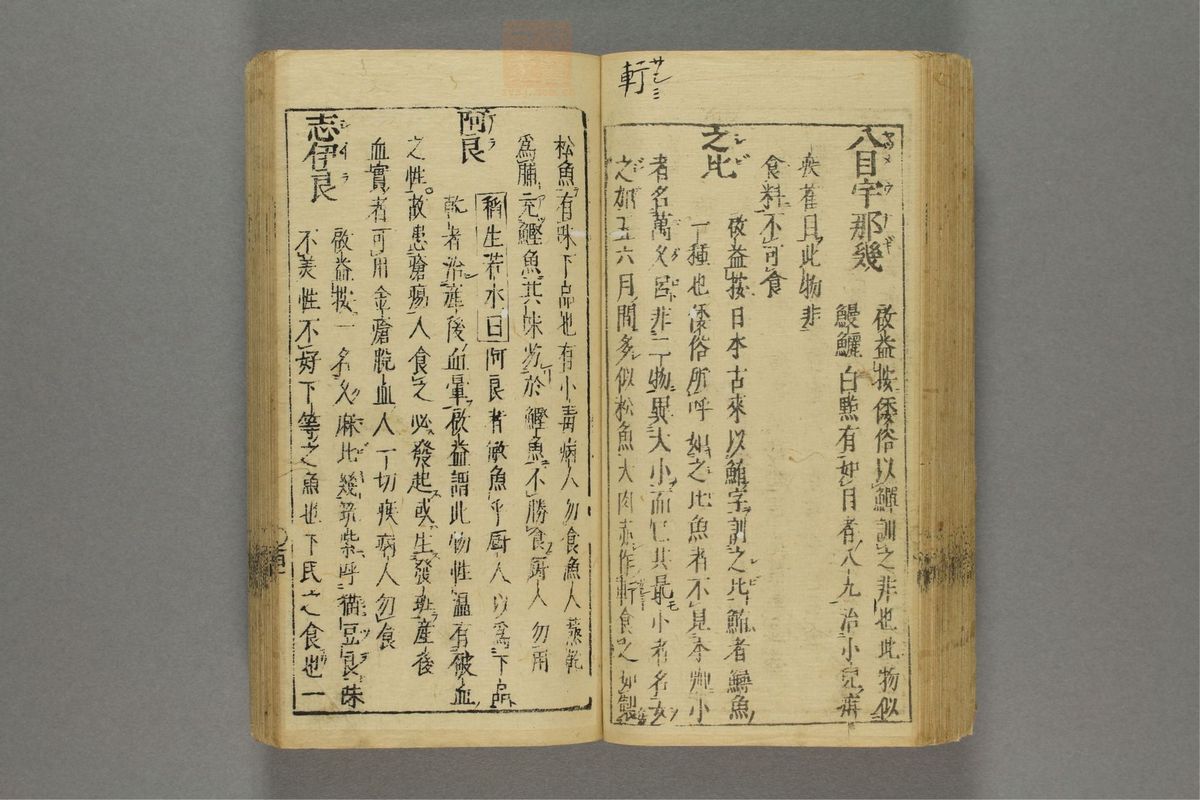 軒
サシミ
八目宇那幾
啟益按倭俗以鱓訓之非也此物似
鰻鱺白點有如目者八九治小兒疳
疾雀目此物非
食料不可食
之比
啟益按日本古來以鮪字訓之比鮪者鱘魚
一種也倭俗所呼如之比魚者不見本艸小
者名萬久呂非二物異大小而仁其最小者名女
之如五六月間多似松魚大肉赤作軒食之如製
松魚有味下品也有小毒病人勿食漁人蒸乾
爲脯充鰹魚其味劣於鰹魚不勝食厨人勿用
阿良
稱生若水曰阿良者鰵魚乎厨人以爲下品
乾者治產後血暈啟益謂此物性溫有破血
之性故患瘡瘍人食之必發起或生發斑產後
血實者可用金瘡脫血人一切疾病人勿食
志伊良
啟益按一名久麻比幾筑紫呼猫豆良味
不美性不好下等之魚也下民之食也一